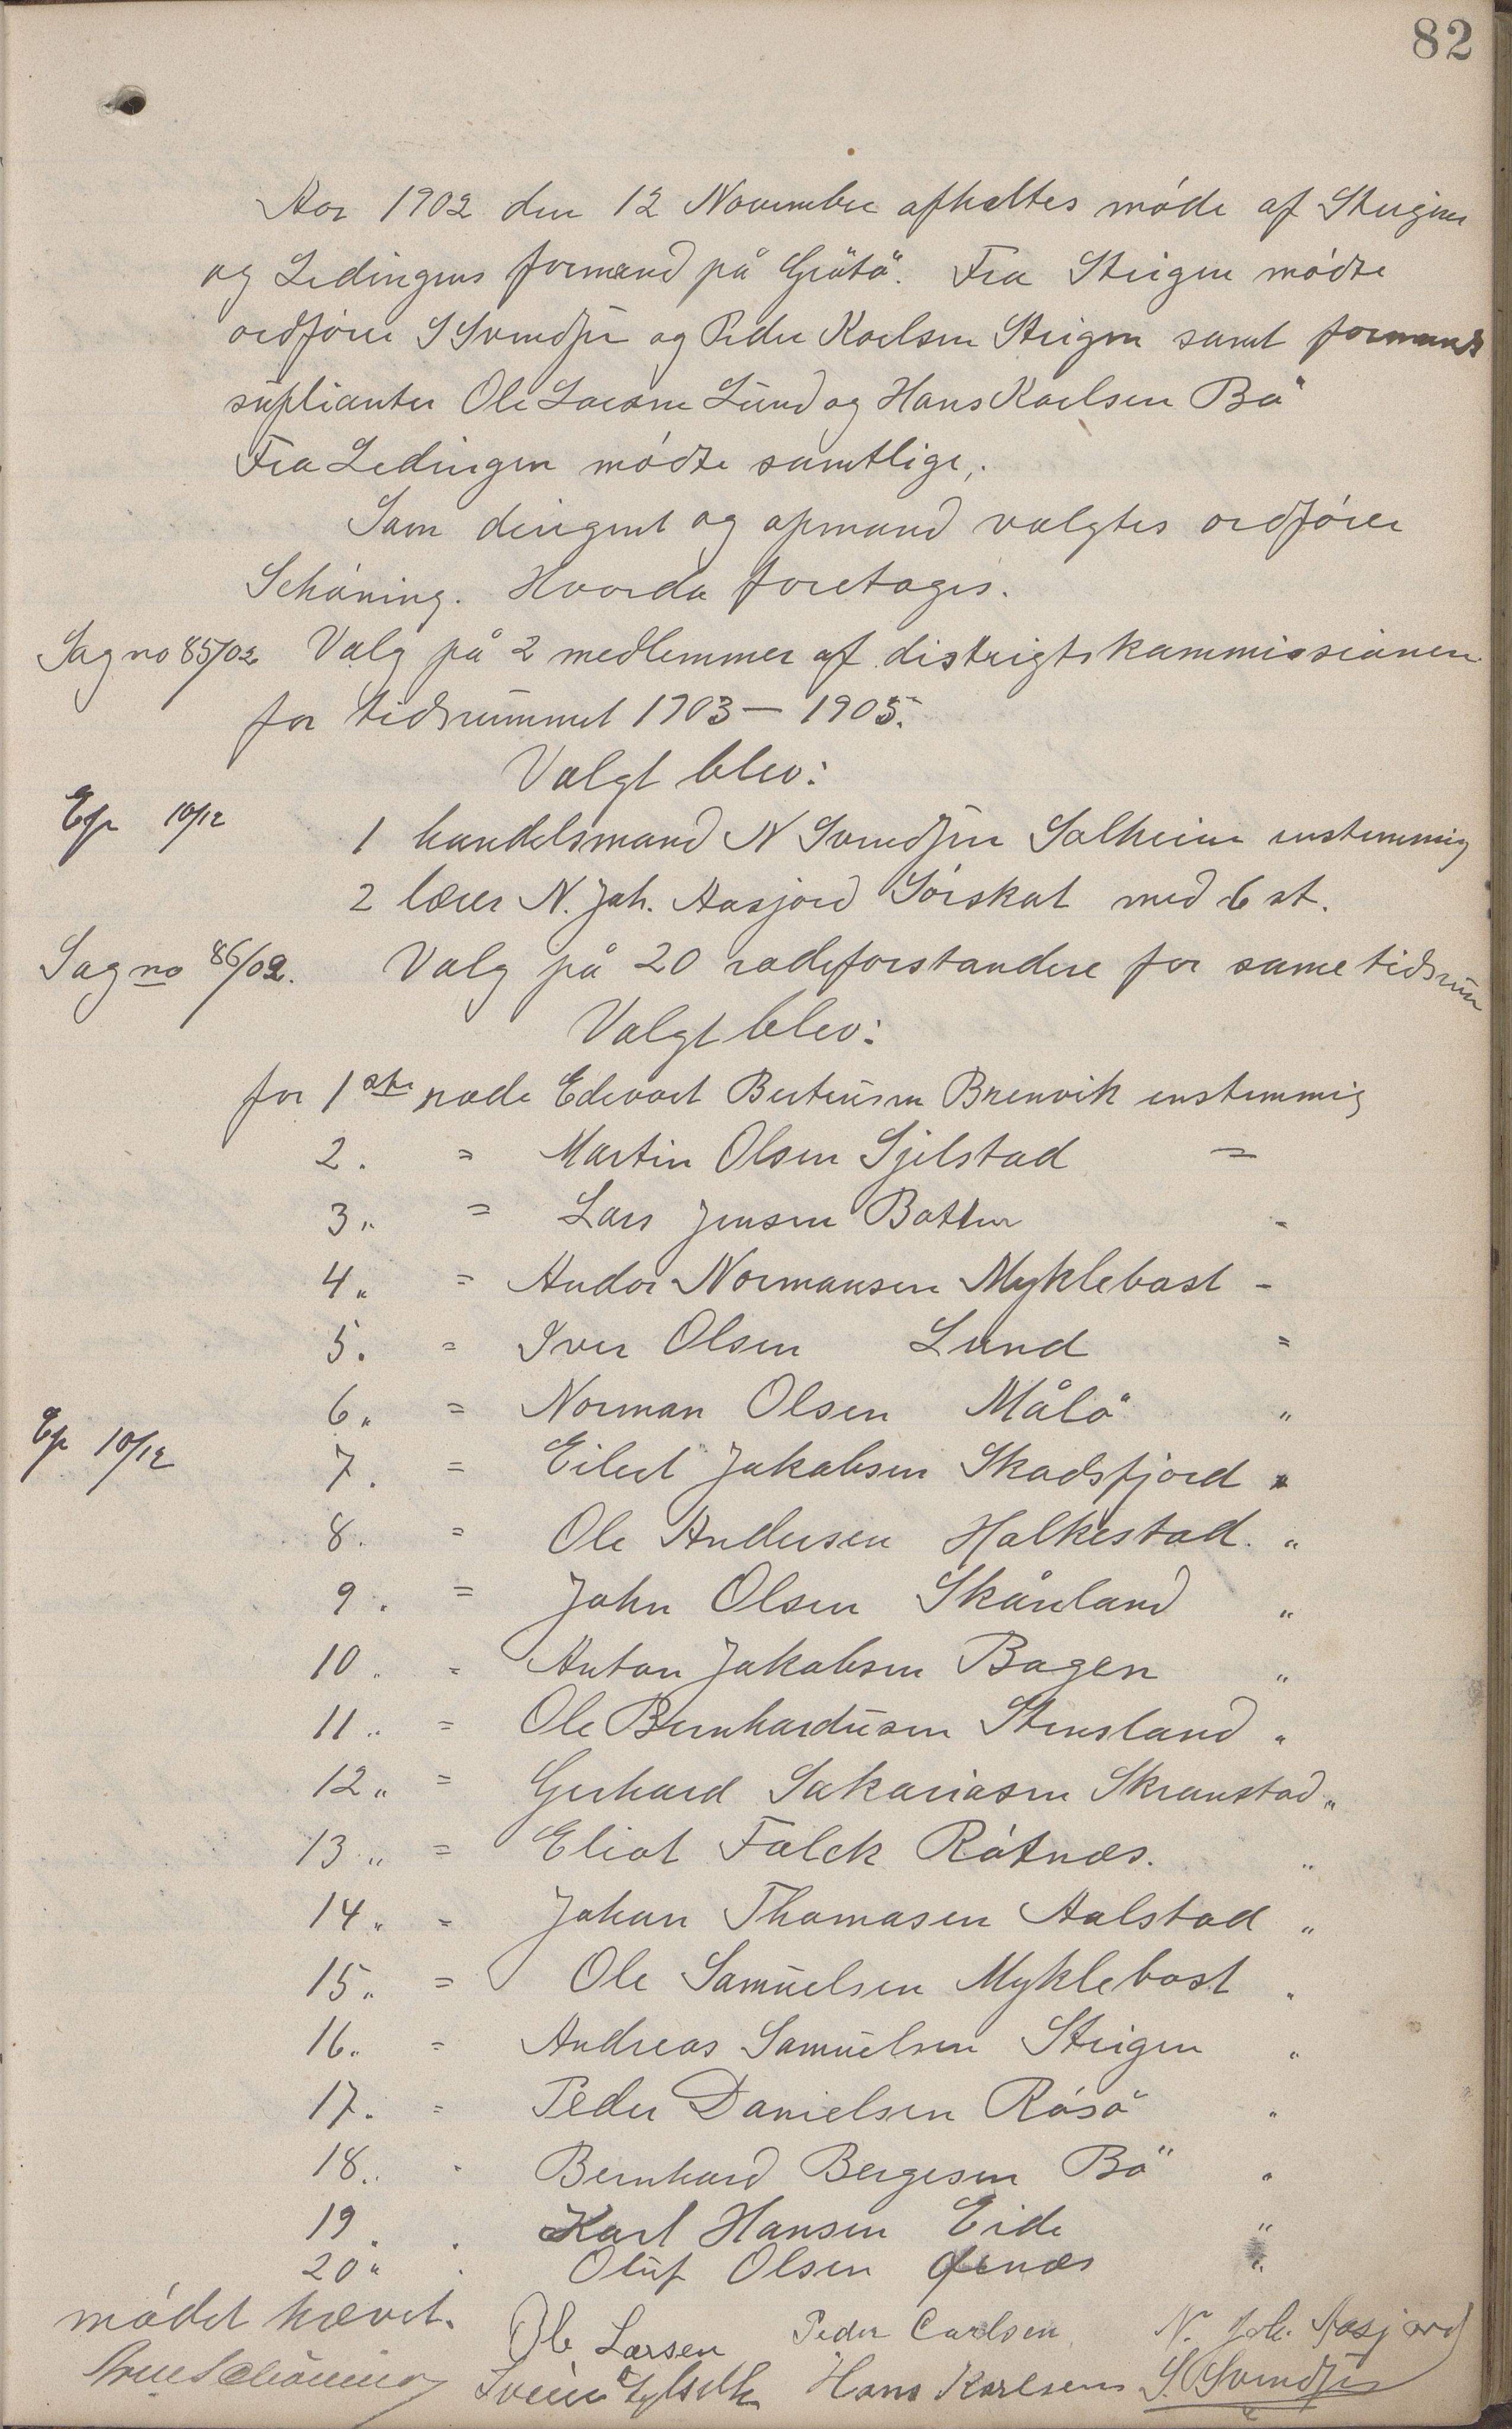 82
Aar 1902 den 12 November afholtes møde af Steigens
og Ledingens formænd på Grøtø. Fra Steigen mødte
ordfører S Svendsen og Peder Karlsen Steigen samt formands
suplianter Ole Larsen Lund og Hans Karlsen Bø
Fra Ledingen mødte samtlige,.
Som dirigent og opmand valgtes ordfører
Schøning. Hvorda foretoges.
Sag no 85/02 Valg på 2 medlemmer af distrigtskommissionen
for tidsrummet 1903 — 1905.
Valgt blev:
Ep 10/12 1 handelsmand N Svendsen Solheim enstemmig
2 lærer N. Joh. Aasjord Sørskot med 6 st.
Sag no 86/02. Valg på 20 rodeforstandere for same tidsrum
Valgt blev:
for 1ste rode Edevart Berteusen Brenvik enstemmig
2. = Martin Olsen Sjelstad =
3. " = Lars Jensen Botten -
4. " = Andor Normansen Myklebost -
5. = Iver Olsen Lund =
6. " = Norman Olsen Målø "
Ep 10/12 7. = Eilert Jakobsen Skodsfjord "
8. = Ole Andersen Holkestad. "
9. = John Olsen Skånland "
10. = Anton Jakobsen Bogen "
11. " = Ole Bernhardusen Stensland "
12. " = Gerhard Sakariasen Skranstad "
13. " = Eliot Falck Røtnæs. "
14. " = Johan Thomasen Aalstad "
15. " = Ole Samuelsen Myklebost "
16. = Andreas Samuelsen Steigen "
17. = Peder Danielsen Røsø "
18. " Bernhard Bergesen Bø "
19. . Karl Hansen Eide "
20 " . Oluf Olsen Ørnæs "
mødet hævet.
Ole Larsen Peder Carlsen N. Joh. Aasjord
Schøning Hans Karlsen S. Svendsen